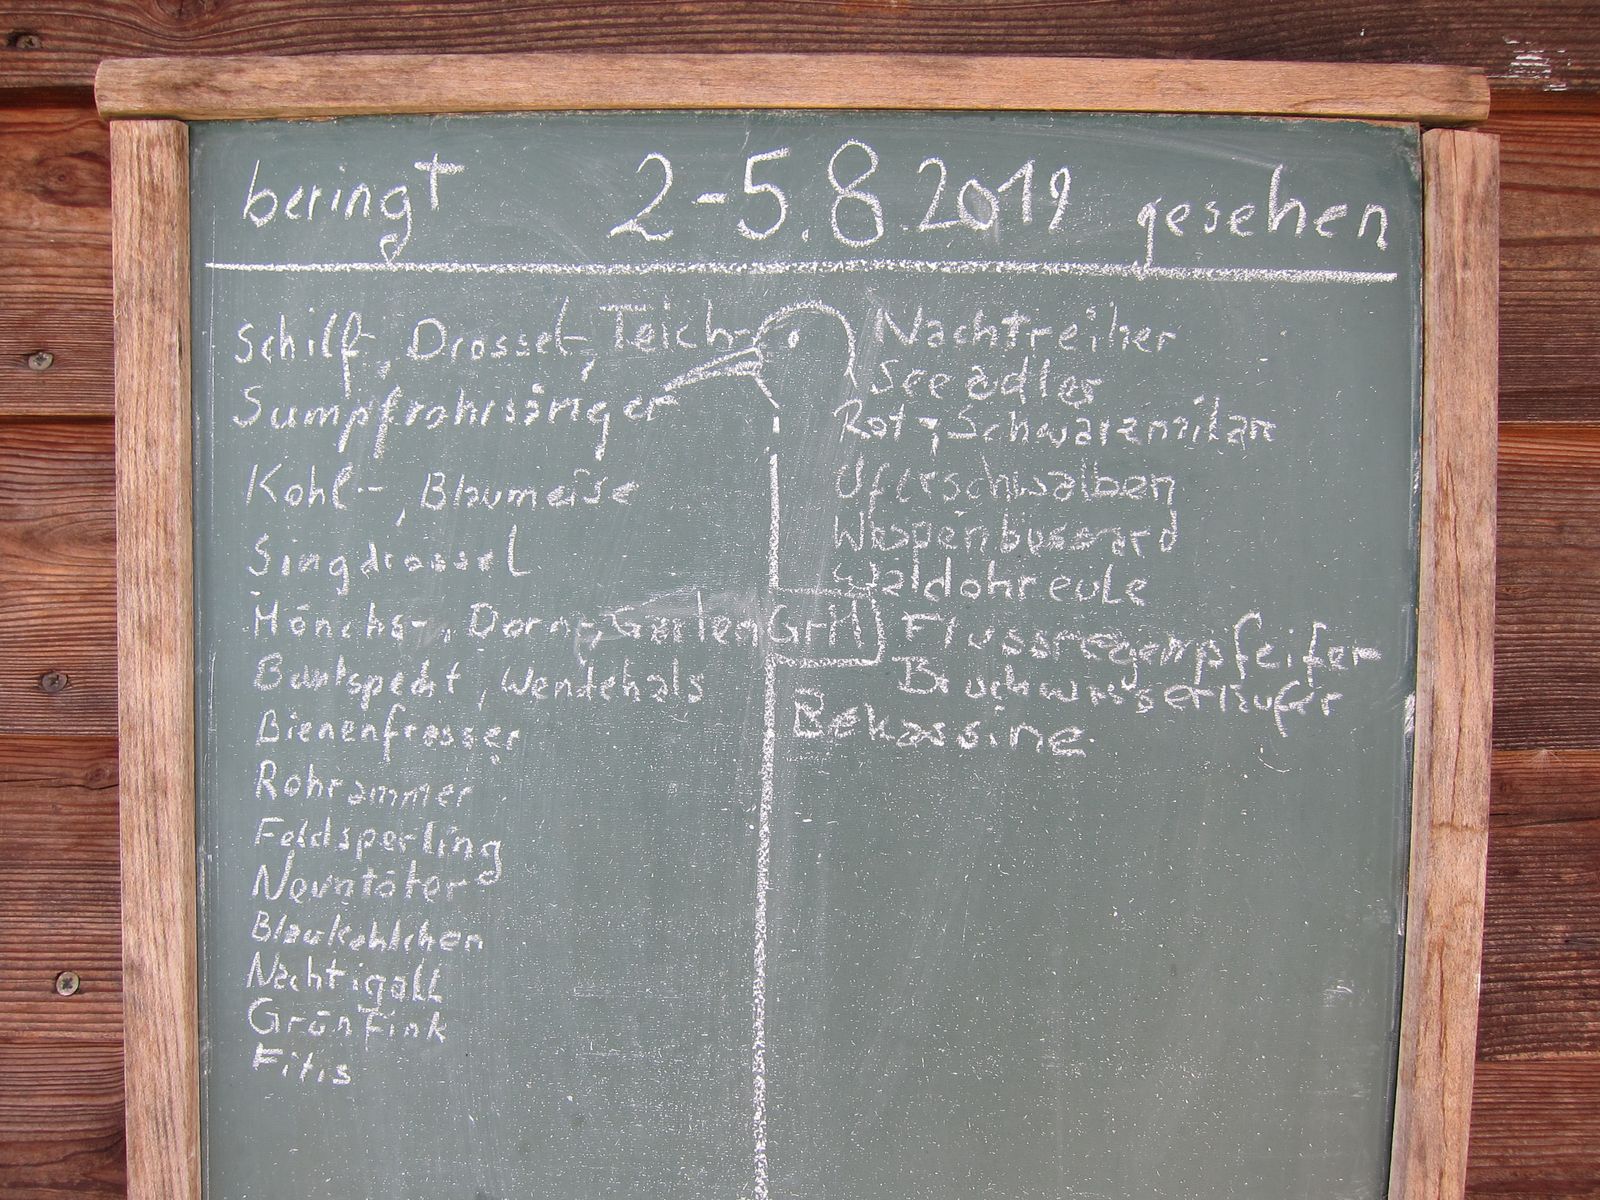 beringt 2-5.8.2019 gesehen
Schilf-, Drossel-, Teich-
Sumpfrohrsänger
Kohl-, Blaumeise
Singdrossel
Mönchs-, Dorn-, GartenGrM
Buntspecht, Wendehals
Bienenfresser
Rohrammer
Feldsperling
Neuntöter
Blaukehlchen
Nachtigall
Grünfink
Fitis
Nachtreiher
Seeadler
Rot-, Schwarzmilan
Uferschwalben
Wespenbussard
Waldohreule
Flussregenpfeifer
Bruchwasserläufer
Bekassine